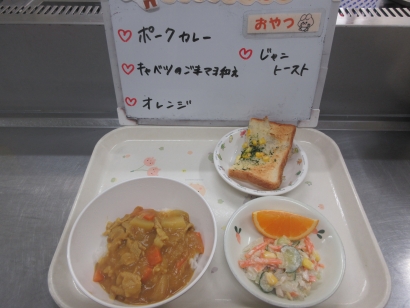 ポークカレー
キャベツのごまマヨ和え
オレンジ
おやつ
じゃこ
トースト